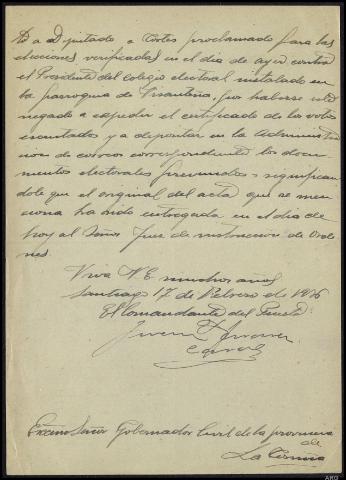 to a Diputado a Cortes proclamado para las
elecciones verificadas en el dia de ayer contra
el Presidente del Colegio electoral instalado en
la parroquia de por haberse este
negado a expedir el certificado de los votos
escrutados y a depositar en la Administra
cion de correos correspondiente los docu
mentos electorales prevenidos: significan
dole que el original del acta que se men
ciona ha sido entregada en el dia de
hoy al Señor Juez de instrucción de Orde
nes.
Viva V. E. muchos años
Santiago 17 de Febrero de 1936
El Comandante del Puesto:
Excmo Señor Gobernador Civil de la provincia
de
La Coruña